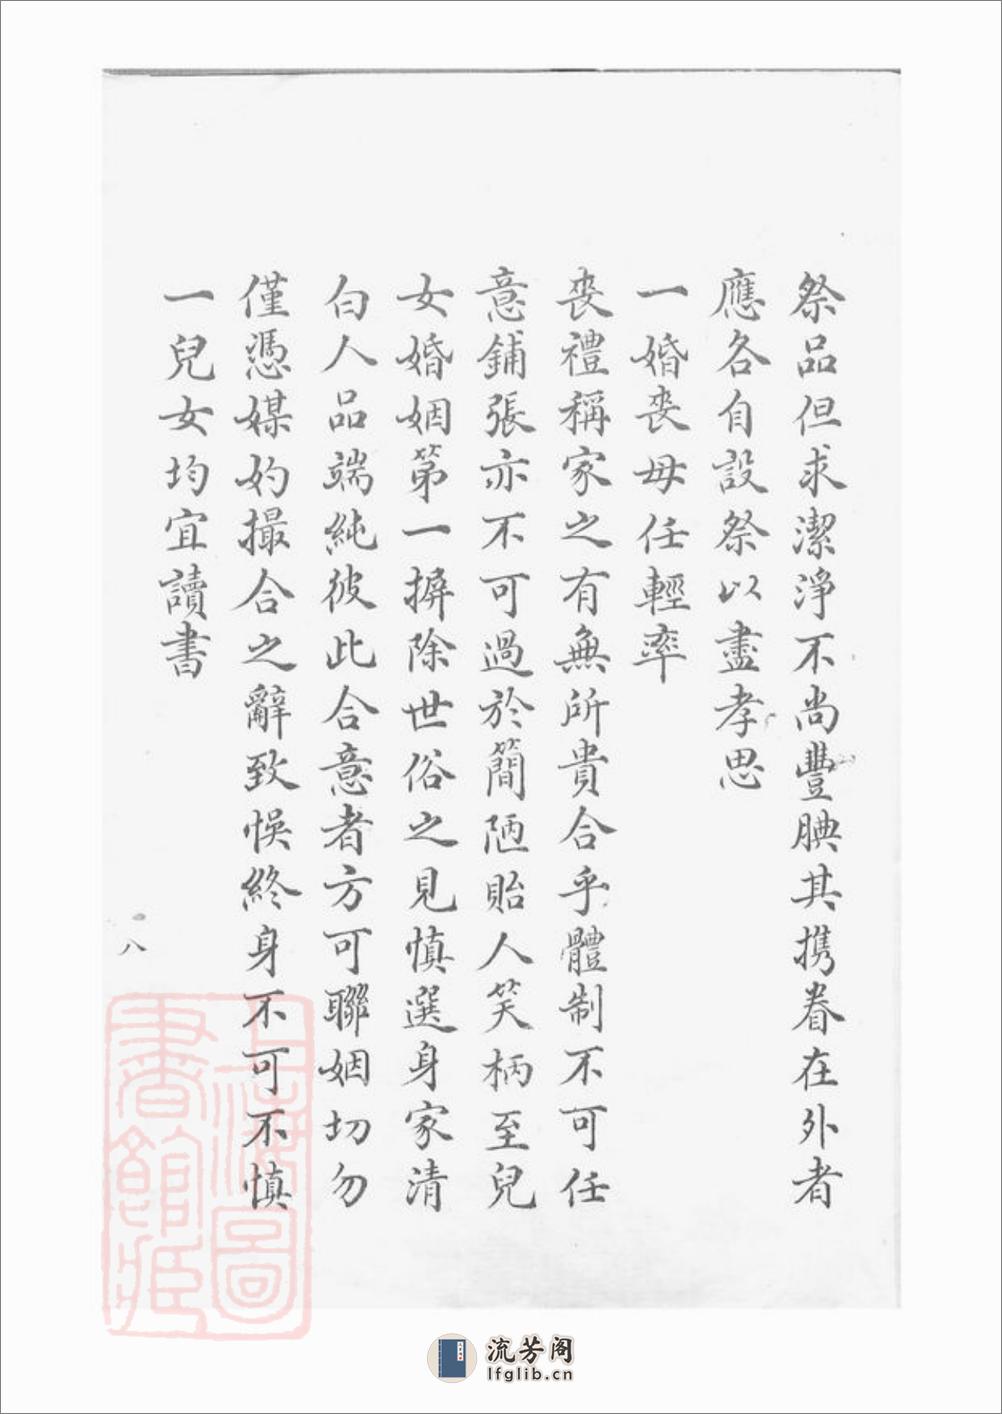 祭品但求潔淨不尚豐腆其携眷在外者
應各自設祭以盡孝思
一婚喪毋任輕率
喪禮稱家之有無所貴合乎體制不可任
意鋪張亦不可過於簡陋貽人笑柄至兒
女婚姻第一摒除世俗之見慎選身家清
白人品端純彼此合意者方可聯姻切勿
僅憑媒妁撮合之辭致悞終身不可不慎
一兒女均宜讀書
八
上海圖
書館藏
流芳阁
lfglib.cn